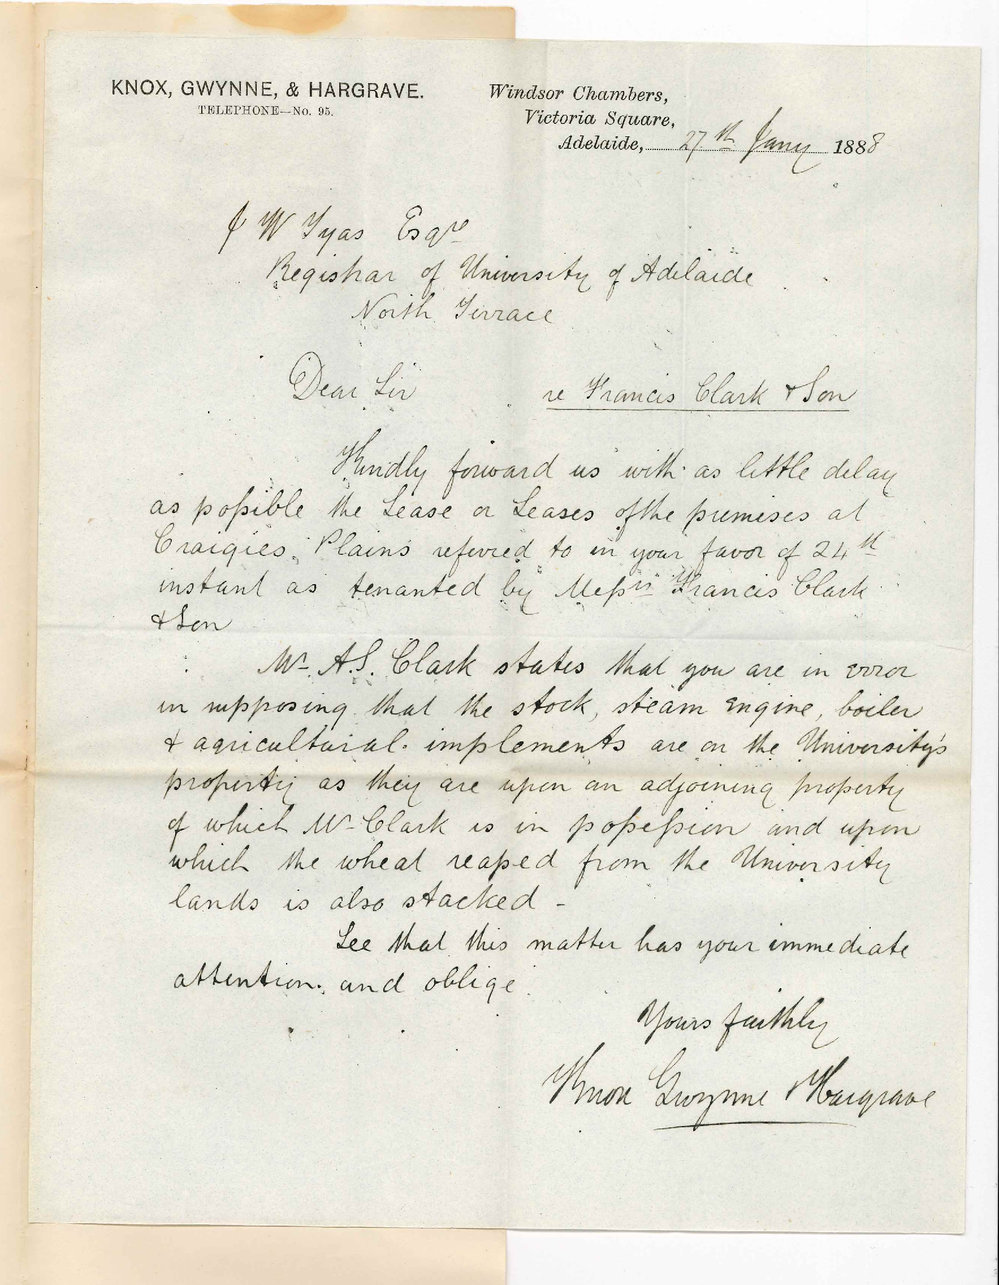 KNOX, GWYNNE, & HARGRAVE.
TELEPHONE—No. 95.
Windsor Chambers,
Victoria Square,
Adelaide, 27th Jany 1888
J W Tyas Esqre
Registrar of University of Adelaide
North Terrace
Dear Sir
re Francis Clark & Son
Kindly forward us with as little delay
as possible the Lease or Leases of the premises at
Craigies Plains referred to in your favor of 24th
instant as tenanted by Messrs Francis Clark
& Son
Mr A.S. Clark states that you are in error
in supposing that the stock, steam engine, boiler
& agricultural implements are on the University's
property as they are upon an adjoining property
of which Mr Clark is in possession and upon
which the wheat reaped from the University
lands is also stacked –
See that this matter has your immediate
attention and oblige
Yours faithly
Knox Gwynne & Hargrave